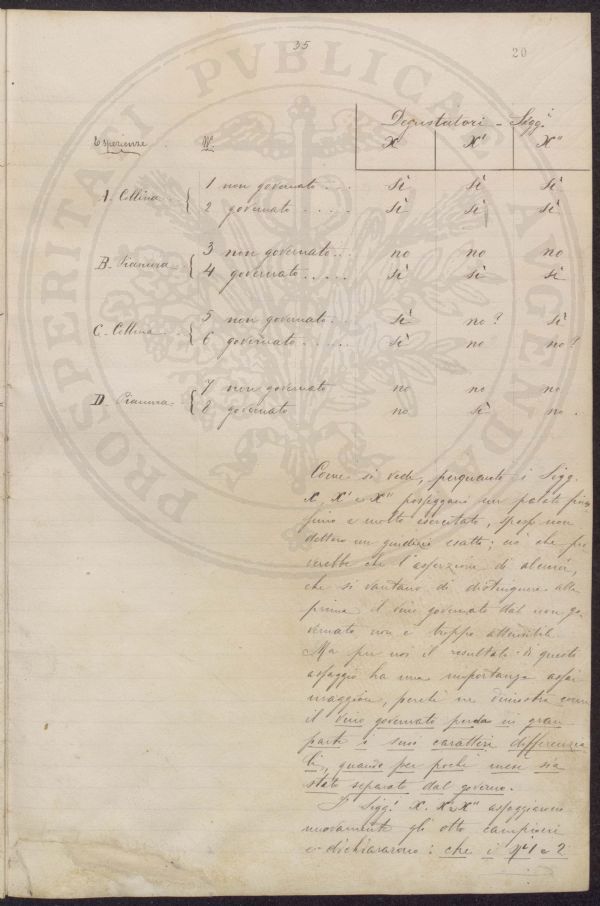 35
20
Degustatori - Sigg.i
Esperienze Ni X X' X"
A. Collina { 1 non governato . . . Sì sì sì
2 governato . . . . . sì sì sì
B. Pianura { 3 non governato . . no no no
4 governato . . . . . sì sì sì
C. Collina . . { 5 non governato . . . sì no? sì
6 governato . . . . . sì no no?
D. Pianura { 7 non governato no no no
8 governato no sì no .
Come si vede, perquanto i Sigg.
X, X' e X" posseggano un palato
fino e molto esercitato, spesso non
dettero un giudizio esatto; ciò che pro
verebbe che l'asserzione di alcuni,
che si vantano di distinguere alla
prima il vino governato dal non go
vernato non è troppo attendibile.
Ma per noi il resultato di questo
assaggio ha una importanza assai
maggiore, perchè ne dimostra come
il vino governato perda in gran
parte i suoi caratteri differenzia
li, quando per pochi mesi sia
stato separato dal governo.
I Sigg.i X. X' e X" assaggiarono
nuovamente gli otto campioni
e dichiararono: che i Ni 1 e 2
PROSPERITATI PVBLICAE AVGENDAE